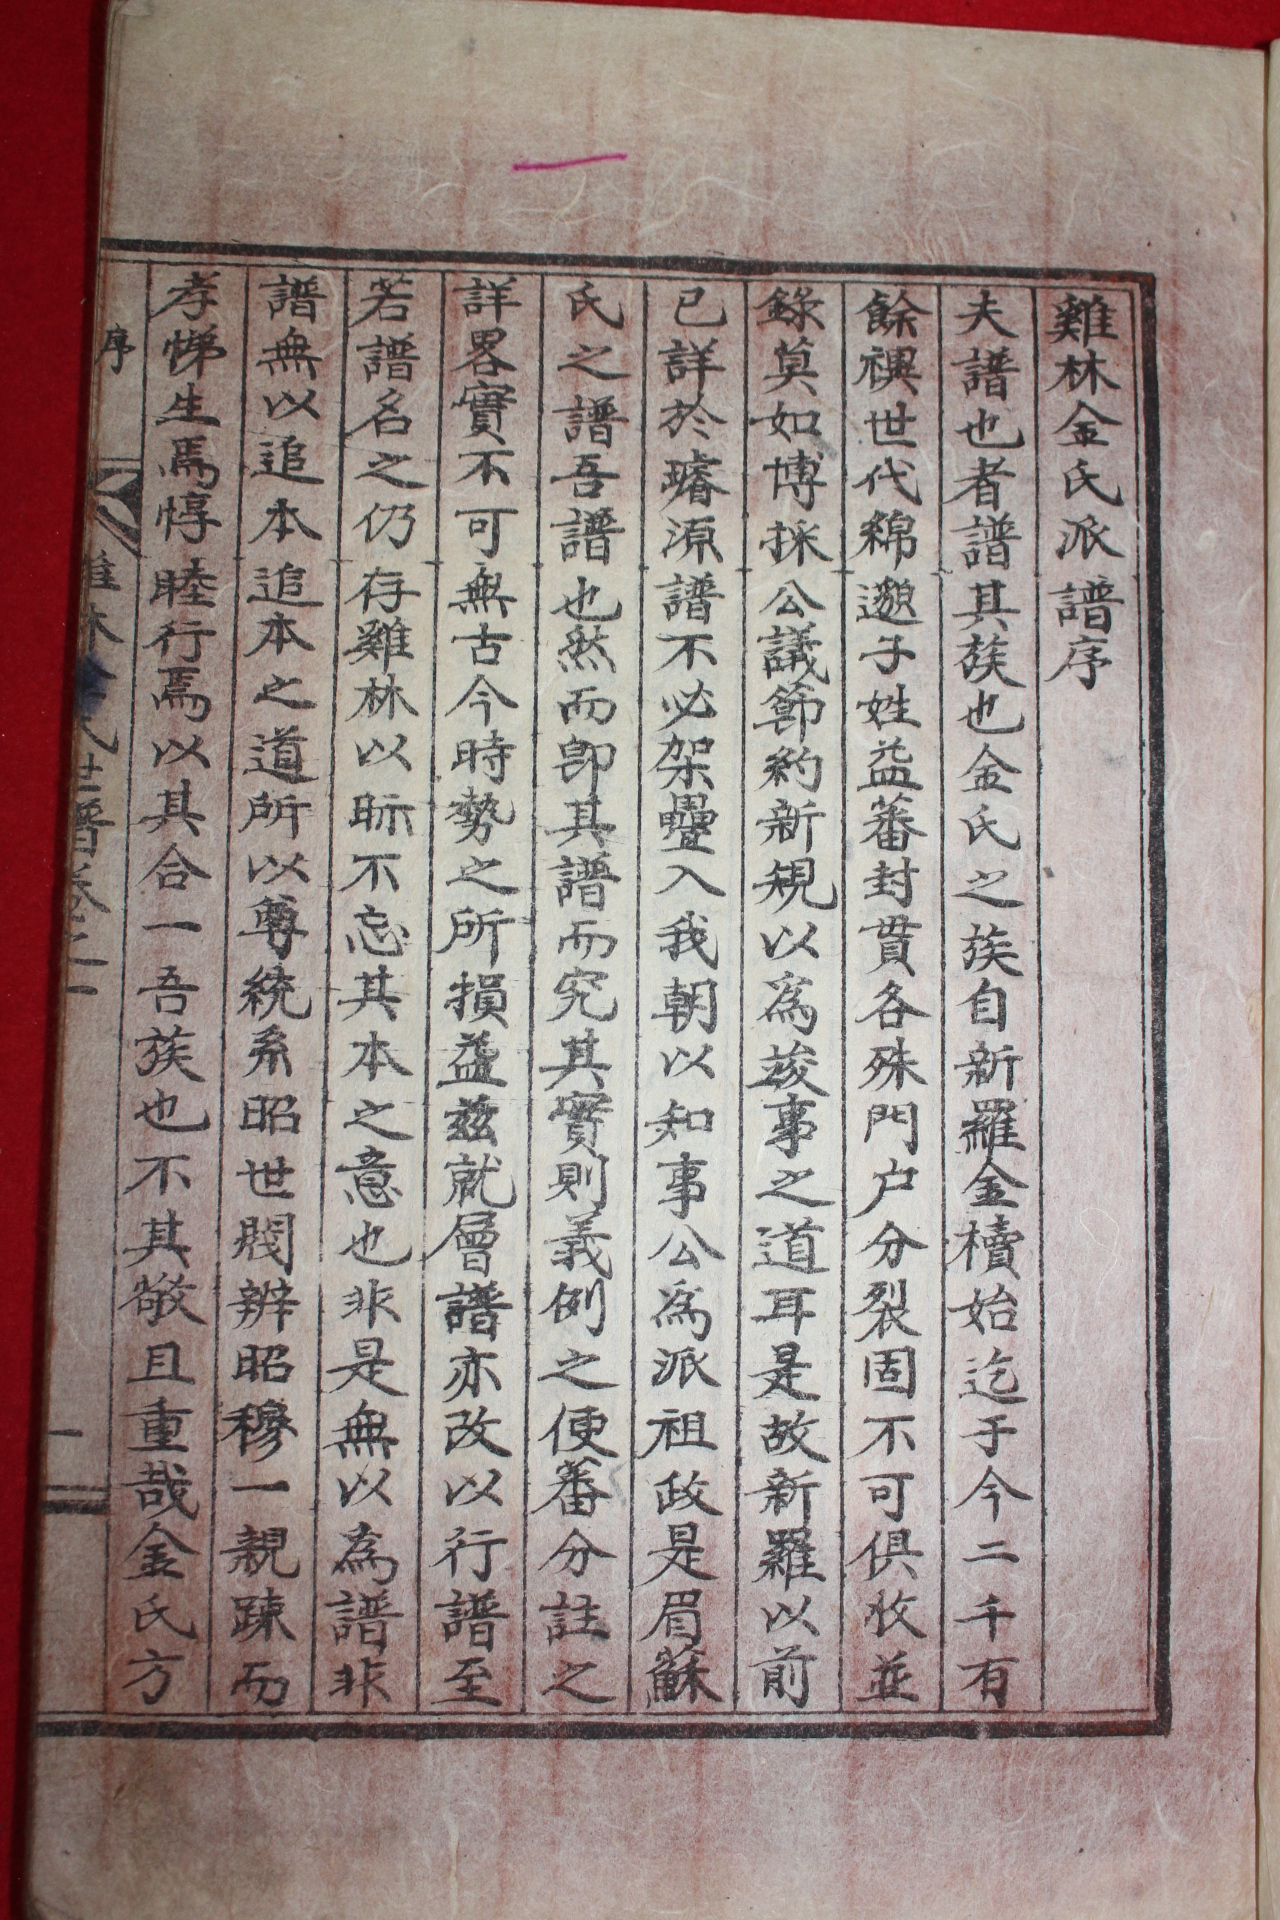 雞林金氏派譜序
夫譜也者譜其族也金氏之族自新羅金櫝始迄于今二千有
餘禩世代綿邈子姓益蕃封貫各殊門户分裂固不可俱收並
錄莫如博採公議節約新規以為竣事之道耳是故新羅以前
已詳於璿源譜不必架疊入我朝以知事公為派祖政是眉蘇
氏之譜吾譜也然而卽其譜而究其實則義例之便蕃分註之
詳畧實不可無古今時勢之所損益玆就層譜亦改以行譜至
若譜名之仍存雞林以眎不忘其本之意也非是無以為譜非
譜無以追本追本之道所以尊統系昭世閥辨昭穆一親疎而
孝悌生焉惇睦行焉以其合一吾族也不其敬且重哉金氏方
序
雞林金氏世譜卷之一
一